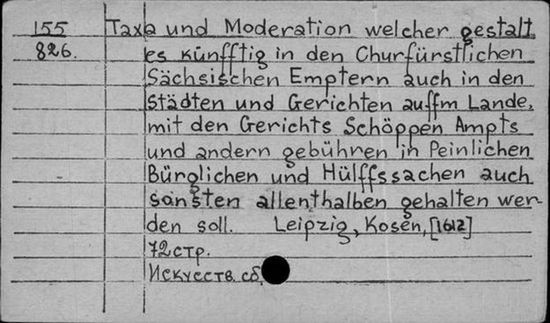 155 Taxa und Moderation welcher gestalt
826. es künfftig in den Churfürstlichen
Sächsischen Emptern auch in den
Städten und Gerichten auffm Lande,
mit den Gerichts Schöppen Ampts
und andern gebühren in Peinlichen
Bürglichen und Hülffssachen auch
sonsten allenthalben gehalten wer-
den soll. Leipzig, Kosen, [1612]
72 стр.
Искусств. сб.